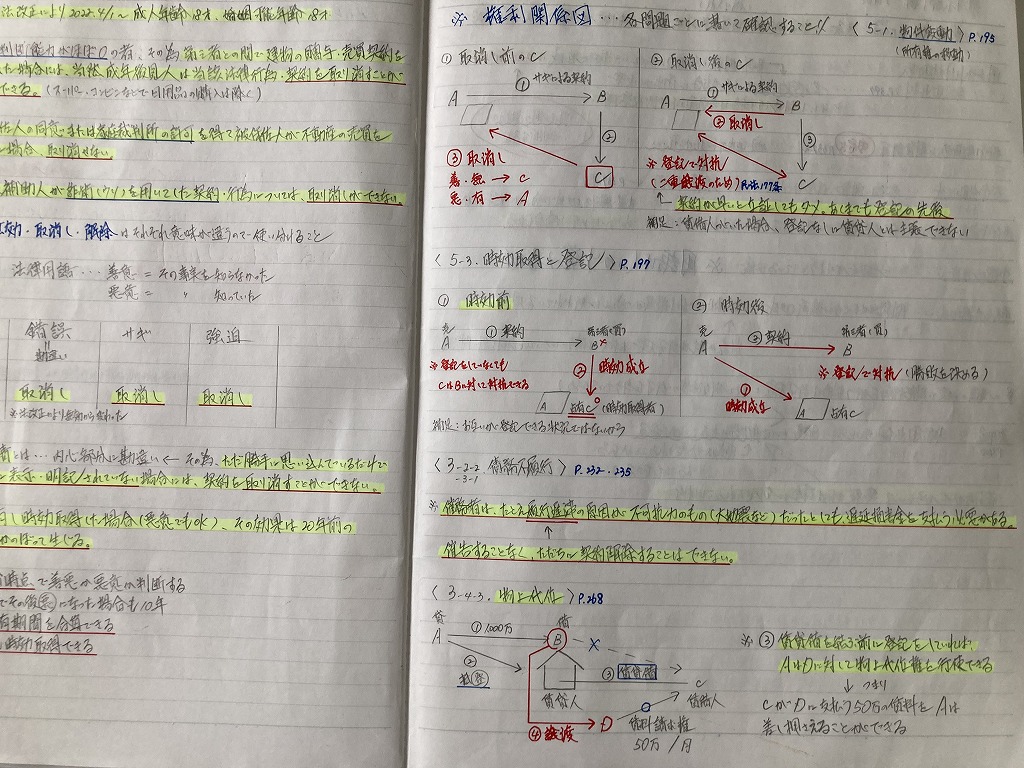 法改正により 2022.4/1~ 成人年齢18才、婚姻可能年齢18才
た場合には、当然、成年後見人は当該法律行為・契約を取り消すことが
できる。(スーパー、コンビニなどで日用品の購入は除く)
場合、取り消せない。
取消し・解除はそれぞれ意味が違うので使い分けること
法律用語 … 善意 = その事実を知らなかった
悪意 = 〃 知っていた
錯誤 サギ 強迫
勘違い
取消し 取消し 取消し
※法改正により無効から変わった
表示・明記されていない場合には、契約を取り消すことができない。
時効取得した場合(悪意でもOK)、その効果は20年前の
時点で善意か悪意か判断する
でその後(悪)になった場合も10年
有期間を合算できる
時効取得できる
※ 権利関係図 … 各問題ごとに書いて確認すること!!
〈5-1. 物件変動〉P.195
(所有権の移動)
① 取消し前のC
① サギによる契約
A B
②
C
③ 取消し
善・無 → C
悪・有 → A
② 取消し後のC
① サギによる契約
A B
② 取消し
③
C
※ 登記で対抗
(二重譲渡のため) 民法177条
↑ 契約が早いと立証してもダメ。あくまでも登記の先後
補足:賃借人がいた場合、登記なしに賃貸人とは主張できない
〈5-3. 時効取得と登記〉P.197
① 時効前
売 A ① 契約 第三者(買) B
※登記をしていなくても
CはBに対して対抗できる
② 時効成立
A 占有C (時効取得者)
補足:お互いが登記できる状況ではないから
② 時効後
売 A ② 契約 第三者(買) B
※ 登記で対抗 (勝敗を決める)
① 時効成立
A 占有C
〈3-2-2 債務不履行〉P.232.235
-3-1
※ 債務者は、たとえ履行遅滞の原因が不可抗力のもの(大地震など)だったとしても、遅延損害金を支払う必要がある。
↑
催告することなく、ただちに契約解除することはできない。
〈3-4-3. 物上代位〉P.268
貸 A ① 1000万 借 B
②
③ 賃貸借
賃貸人 C 賃借人
④ 譲渡 D 賃料請求権
50万/月
※ ③ 賃貸借を結ぶ前に登記をしていれば、
AはDに対して物上代位権を行使できる
↓ つまり
CがDに支払う50万の賃料をAは
差し押さえることができる